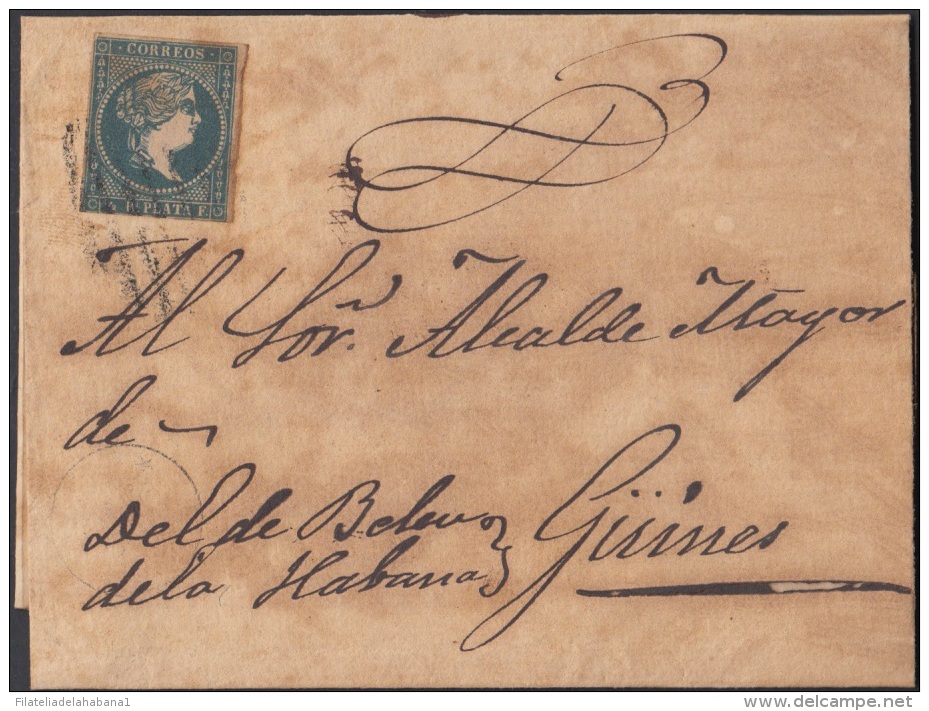 CORREOS
½ R. PLATA F.
Al Sor. Alcalde Mayor
de
Del de Belen
de la Habana
Güines
Filateliadelahabana1
delcampe.net